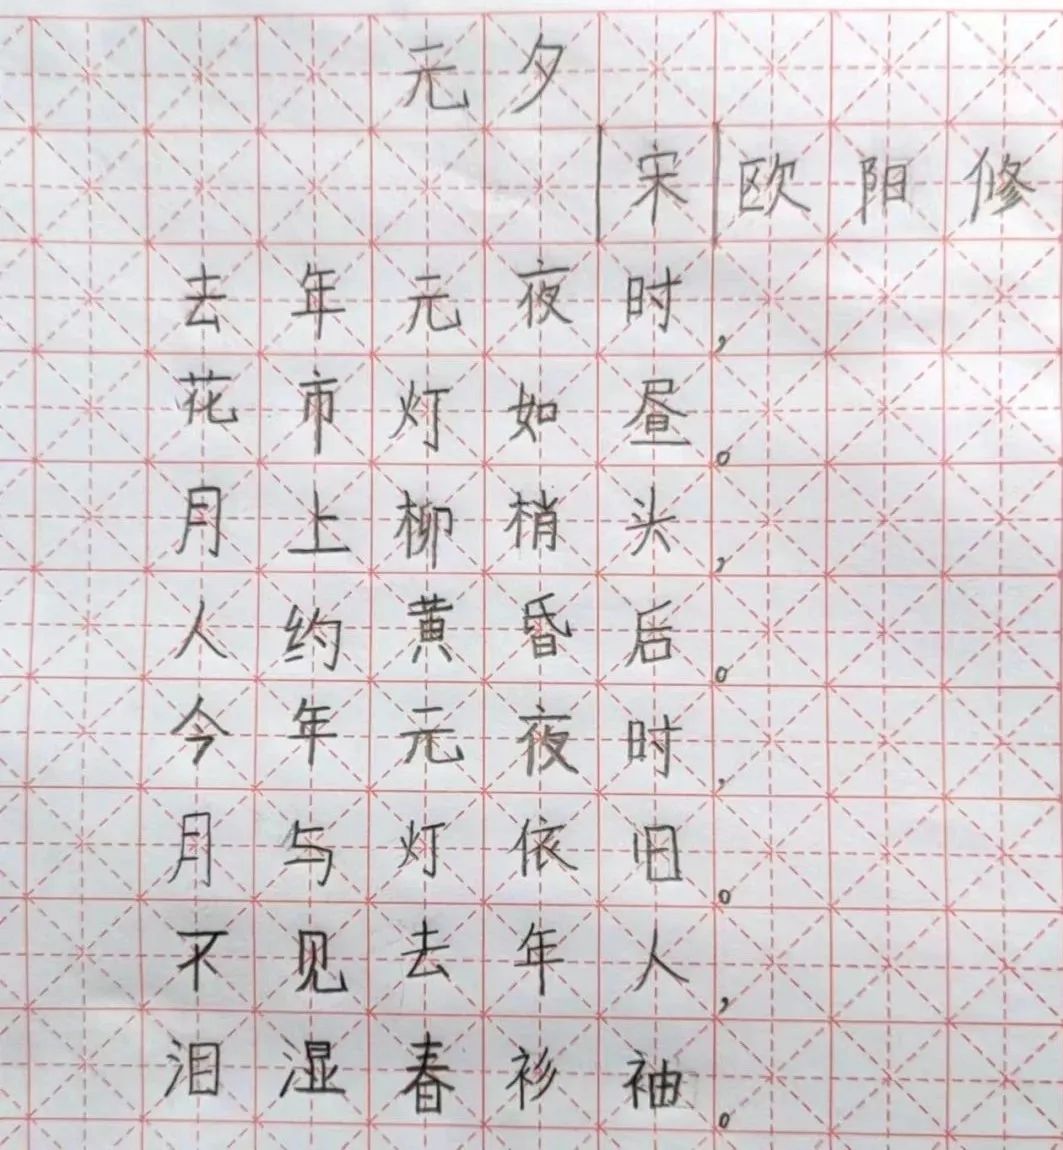 元夕
|宋|欧阳修
去年元夜时，
花市灯如昼。
月上柳梢头，
人约黄昏后。
今年元夜时，
月与灯依旧。
不见去年人，
泪湿春衫袖。